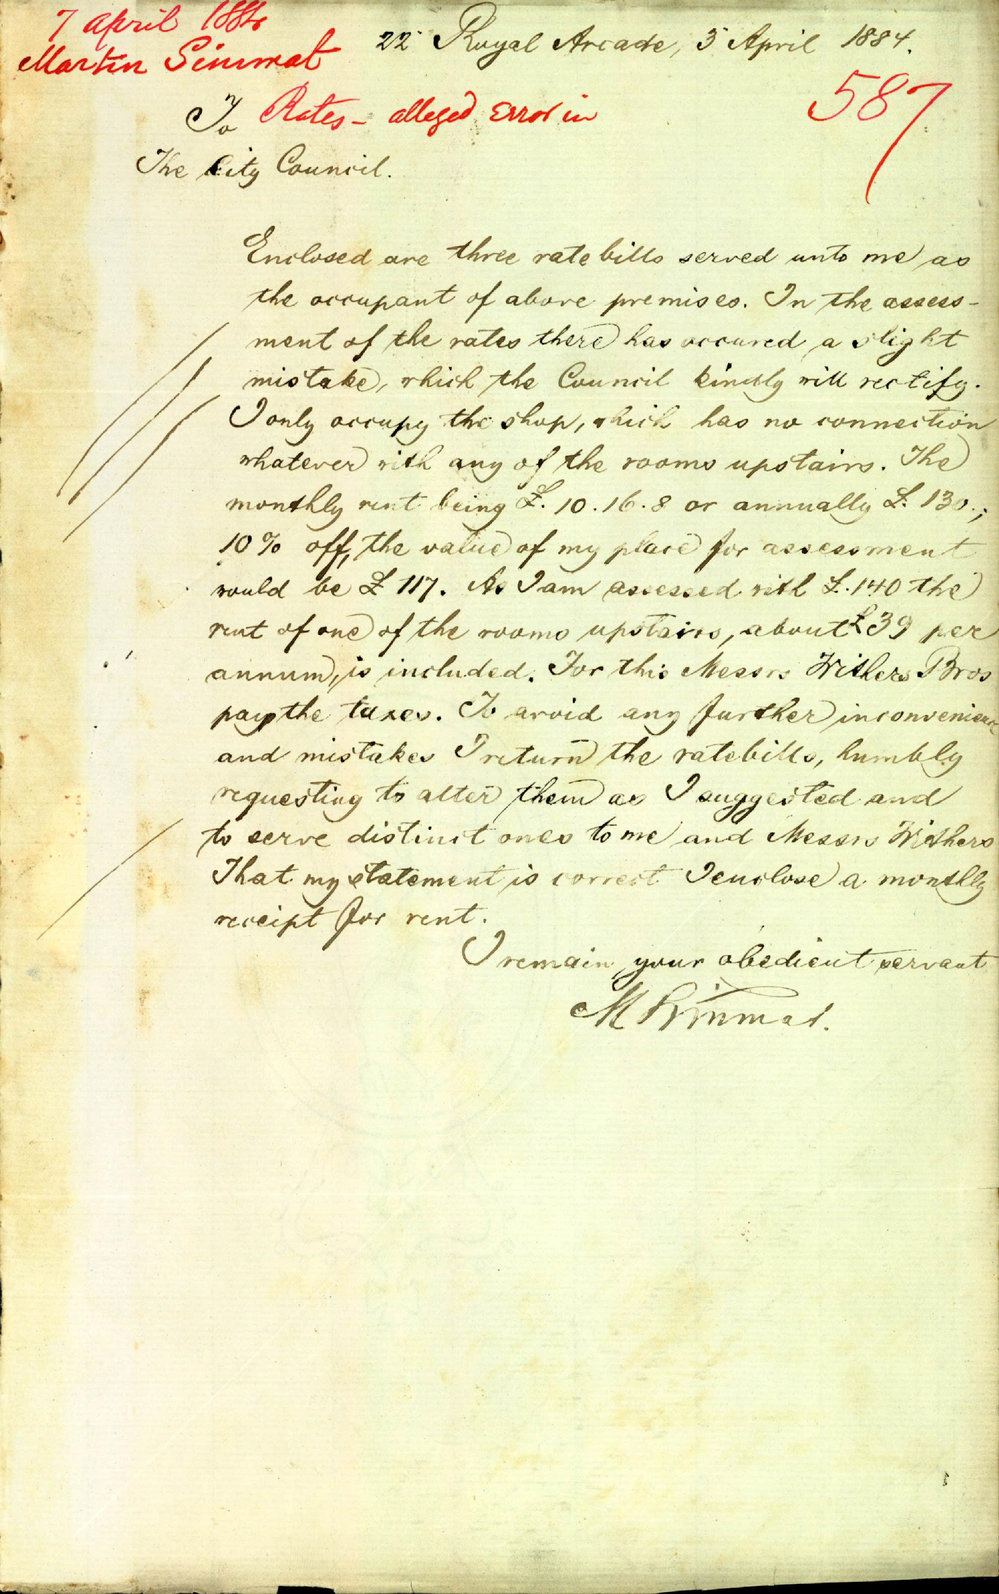 7 April 1884
Martin Simmat
22 Royal Arcade, 5 April 1884.
587
To
Rates - alleged Error in
The City Council.
Enclosed are three rate bills served unto me as
the occupant of above premises. In the assess-
ment of the rates there has occured a slight
mistake, which the Council kindly will rectify.
I only occupy the shop, which has no connection
whatever with any of the rooms upstairs. The
monthly rent being £. 10.16.8 or annually £. 130.;
10% off, the value of my place for assessment
would be £ 117. As I am assessed with £. 140 the
rent of one of the rooms upstairs, about £39 per
annum, is included. For this Messrs Withers Bros
pay the taxes. To avoid any further inconvenience
and mistakes I return the ratebills, humbly
requesting to alter them as I suggested and
to serve distinct ones to me and Messrs Withers
That my statement is correct I enclose a monthly
receipt for rent.
I remain your obedient servant
M Simmat.